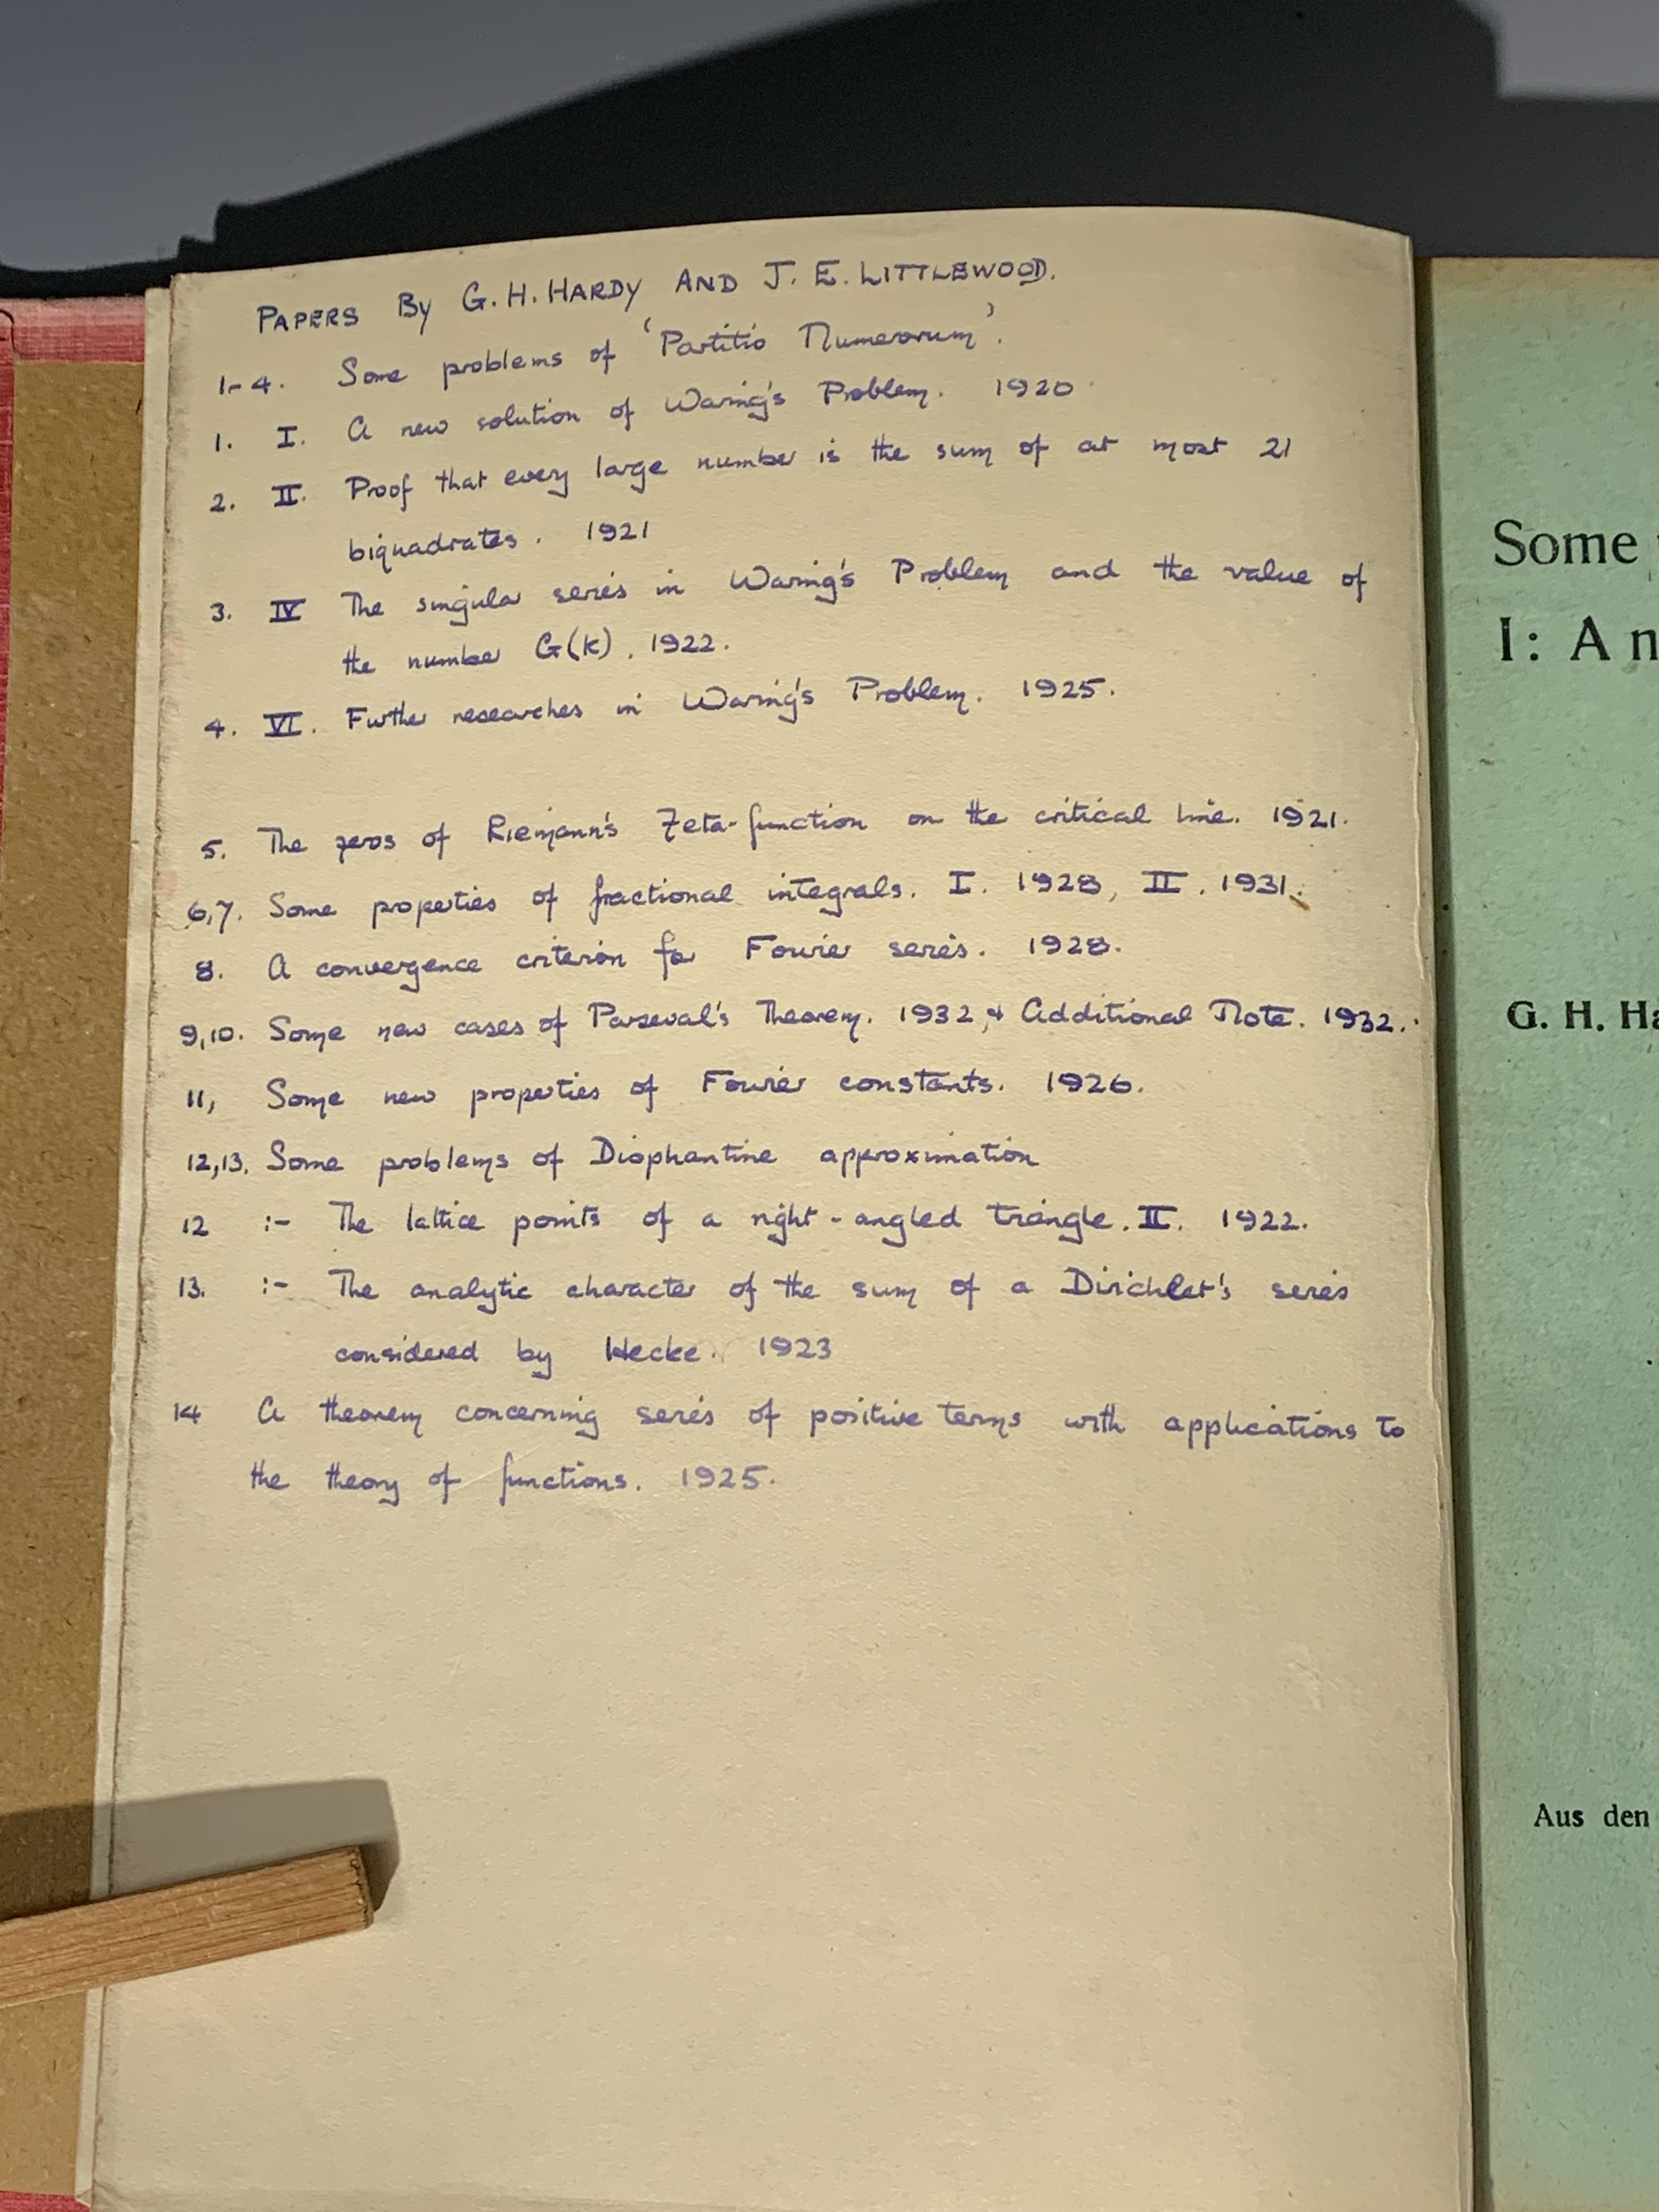 PAPERS BY G. H. HARDY AND J. E. LITTLEWOOD.
1-4. Some problems of 'Partitio Numerorum'.
1. I. A new solution of Waring's Problem. 1920
2. II. Proof that every large number is the sum of at most 21
biquadrates. 1921
3. IV The singular series in Waring's Problem and the value of
the number G(k). 1922.
4. VI. Further researches in Waring's Problem. 1925.
5. The zeros of Riemann's Zeta-function on the critical line. 1921.
6,7. Some properties of fractional integrals. I. 1928, II. 1931.
8. A convergence criterion for Fourier series. 1928.
9,10. Some new cases of Parseval's Theorem. 1932, & Additional Note. 1932.
11, Some new properties of Fourier constants. 1926.
12,13. Some problems of Diophantine approximation
12 :- The lattice points of a right-angled triangle. II. 1922.
13. :- The analytic character of the sum of a Dirichlet's series
considered by Hecke. 1923
14 A theorem concerning series of positive terms with applications to
the theory of functions. 1925.
Some
I: A n
G. H. Ha
Aus den